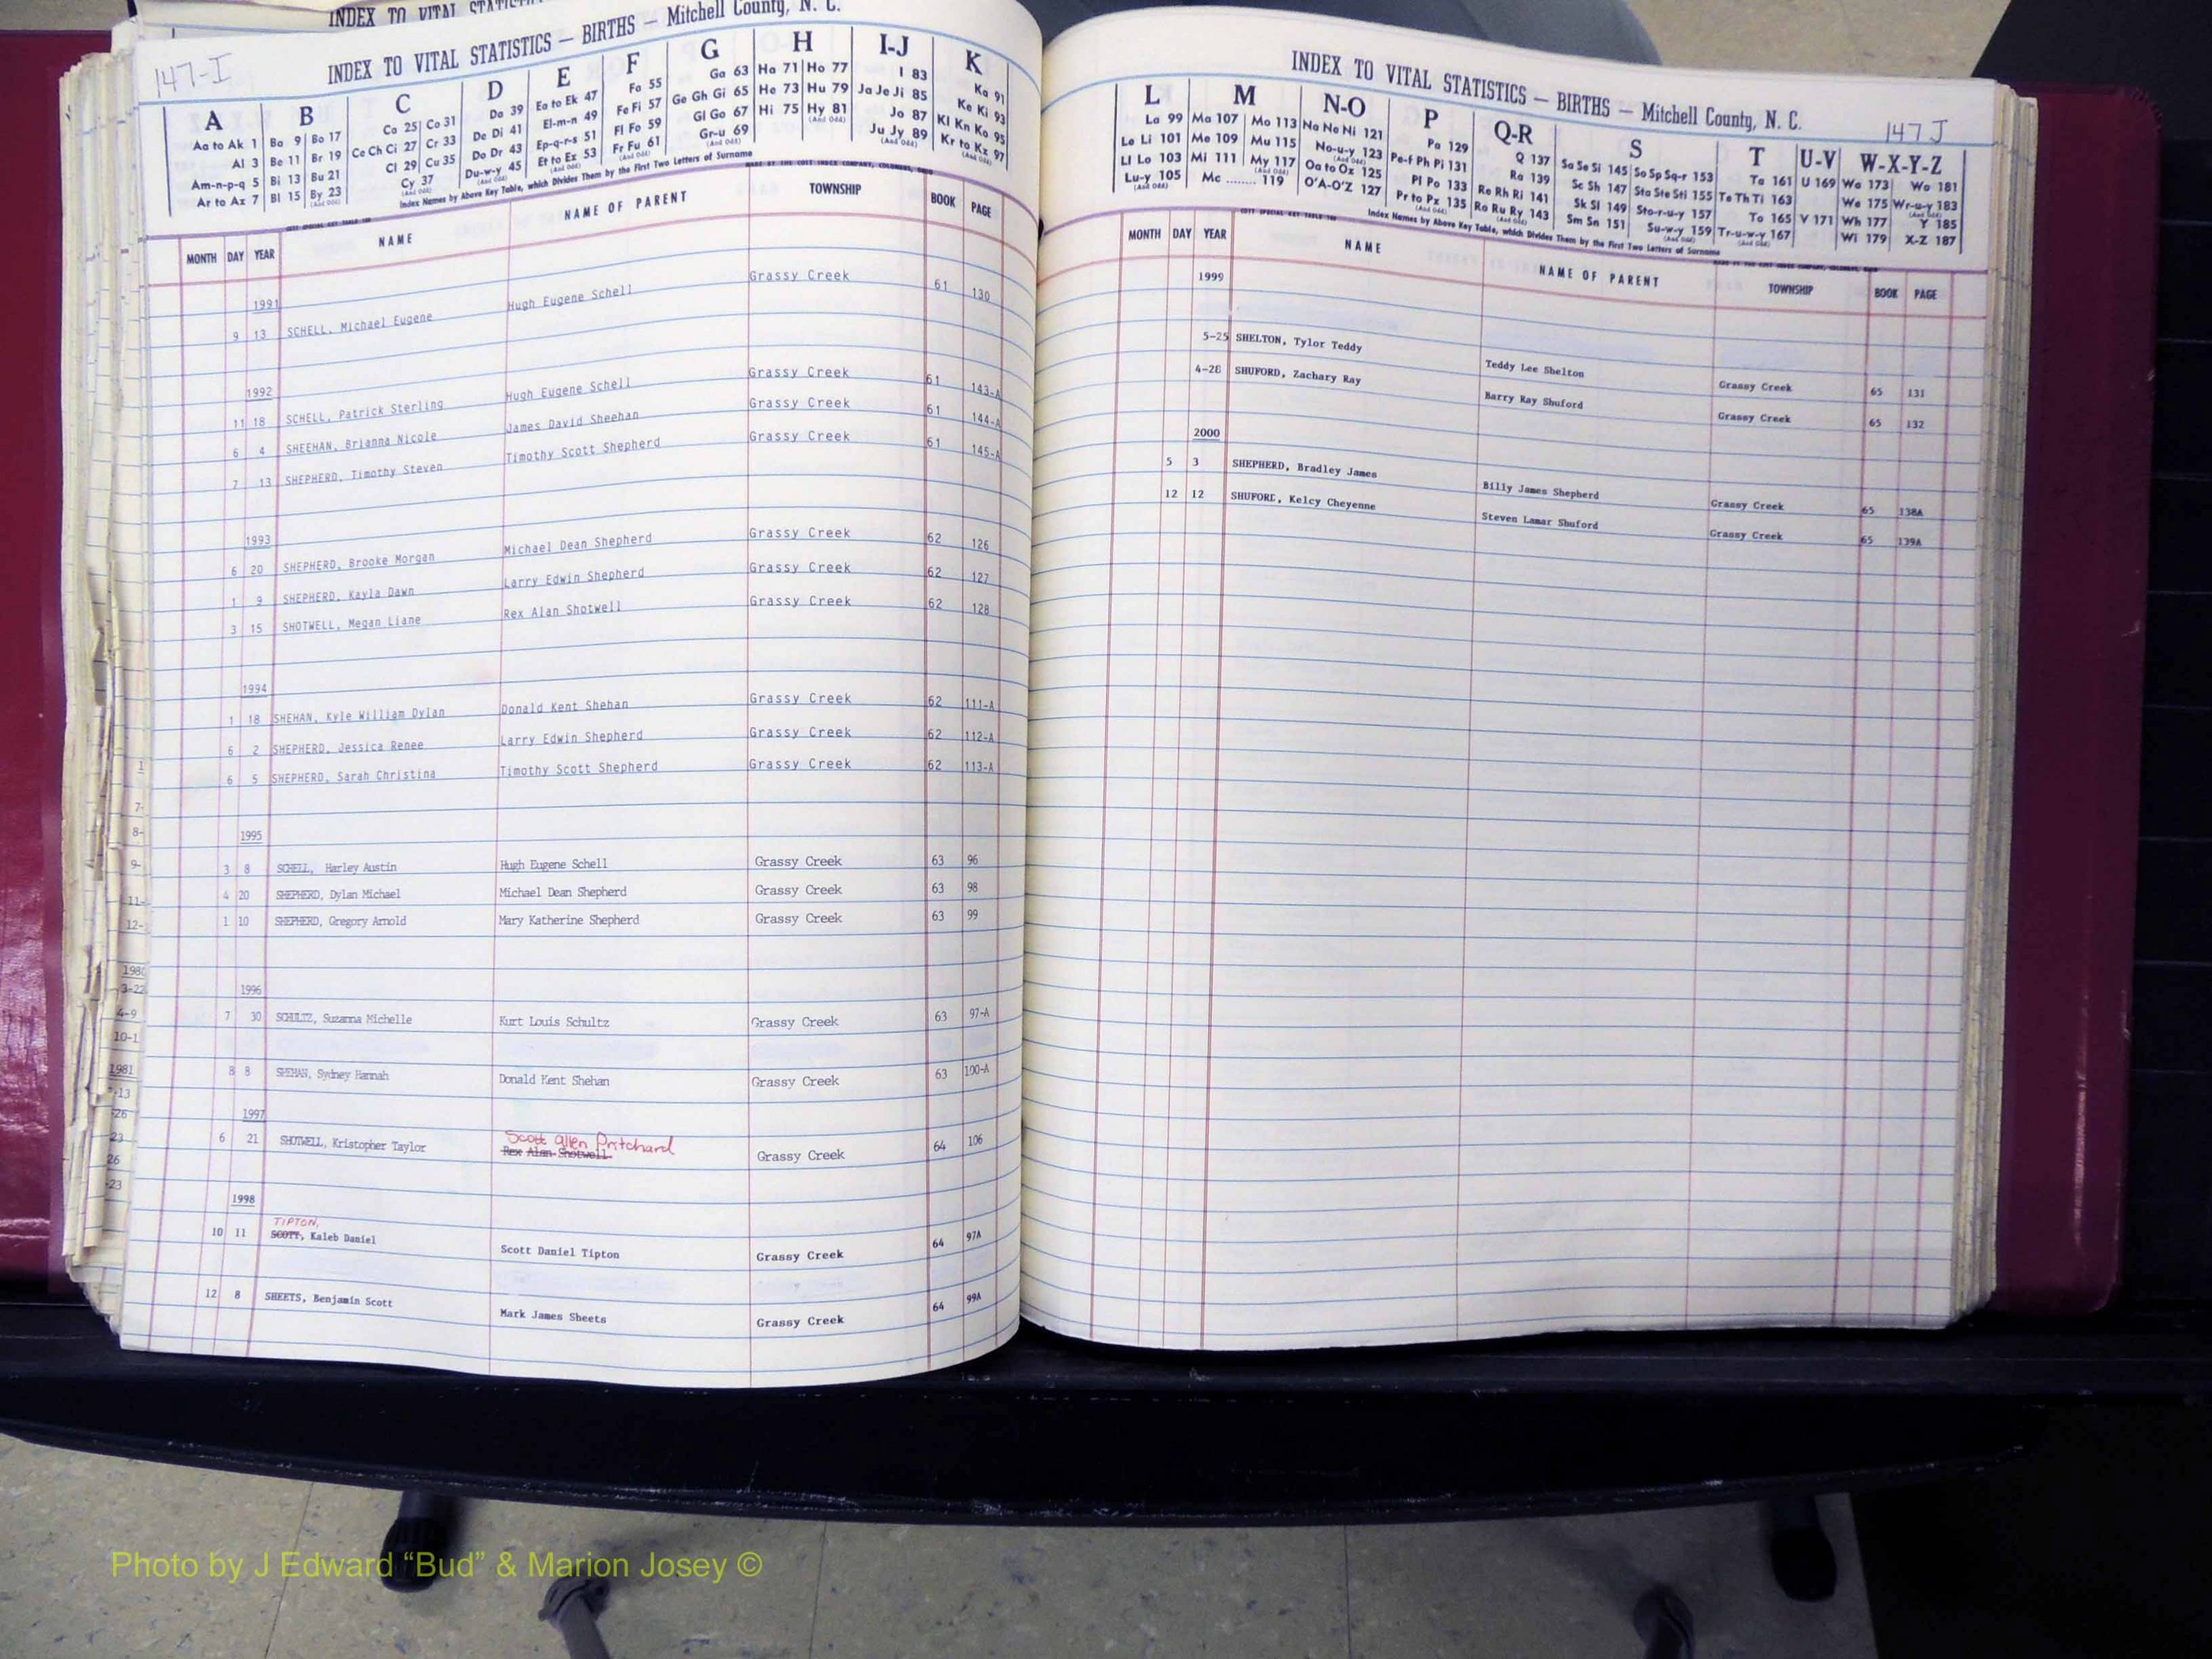 INDEX TO VITAL
147-I
INDEX TO VITAL STATISTICS — BIRTHS — Mitchell County, N. C.
A B C D E F G H I-J K
Aa to Ak 1 Ba 9 Bo 17 Ca 25 Co 31 Da 39 Ea to Ek 47 Fa 55 Ga 63 Ha 71 Ho 77 I 83 Ka 91
Al 3 Be 11 Br 19 Ce Ch Ci 27 Cr 33 De Di 41 El-m-n 49 Fe Fi 57 Ge Gh Gi 65 He 73 Hu 79 Ja Je Ji 85 Ke Ki 93
Am-n-p-q 5 Bi 13 Bu 21 Cl 29 Cu 35 Do Dr 43 Ep-q-r-s 51 Fl Fo 59 Gl Go 67 Hi 75 Hy 81 Jo 87 Kl Kn Ko 95
Ar to Az 7 Bl 15 By 23 Cy 37 Du-w-y 45 Et to Ez 53 Fr Fu 61 Gr-u 69 Ju Jy 89 Kr to Kz 97
Index Names by Above Key Table, which Divides Them by the First Two Letters of Surname
MONTH DAY YEAR NAME NAME OF PARENT TOWNSHIP BOOK PAGE
1991
9 13 SCHELL, Michael Eugene Hugh Eugene Schell Grassy Creek 61 130
1992
11 18 SCHELL, Patrick Sterling Hugh Eugene Schell Grassy Creek 61 143-A
6 4 SHEEHAN, Brianna Nicole James David Sheehan Grassy Creek 61 144-A
7 13 SHEPHERD, Timothy Steven Timothy Scott Shepherd Grassy Creek 61 145-A
1993
6 20 SHEPHERD, Brooke Morgan Michael Dean Shepherd Grassy Creek 62 126
1 9 SHEPHERD, Kayla Dawn Larry Edwin Shepherd Grassy Creek 62 127
3 15 SHOTWELL, Megan Liane Rex Alan Shotwell Grassy Creek 62 128
1994
1 18 SHEHAN, Kyle William Dylan Donald Kent Shehan Grassy Creek 62 111-A
6 2 SHEPHERD, Jessica Renee Larry Edwin Shepherd Grassy Creek 62 112-A
6 5 SHEPHERD, Sarah Christina Timothy Scott Shepherd Grassy Creek 62 113-A
1995
3 8 SCHELL, Harley Austin Hugh Eugene Schell Grassy Creek 63 96
4 20 SHEPHERD, Dylan Michael Michael Dean Shepherd Grassy Creek 63 98
1 10 SHEPHERD, Gregory Arnold Mary Katherine Shepherd Grassy Creek 63 99
1996
7 30 SCHULTZ, Suzanna Michelle Kurt Louis Schultz Grassy Creek 63 97-A
8 8 SHEHAN, Sydney Hannah Donald Kent Shehan Grassy Creek 63 100-A
1997
Scott Allen Pritchard
6 21 SHOTWELL, Kristopher Taylor Rex Alan Shotwell Grassy Creek 64 106
1998
TIPTON,
10 11 SCOTT, Kaleb Daniel Scott Daniel Tipton Grassy Creek 64 97A
12 8 SHEETS, Benjamin Scott Mark James Sheets Grassy Creek 64 99A
147 J
INDEX TO VITAL STATISTICS — BIRTHS — Mitchell County, N. C.
L M N-O P Q-R S T U-V W-X-Y-Z
La 99 Ma 107 Mo 113 Na Ne Ni 121 Pa 129 Q 137 Sa Se Si 145 So Sp Sq-r 153 Ta 161 U 169 Wa 173 Wo 181
Le Li 101 Me 109 Mu 115 No-u-y 123 Pe-f Ph Pi 131 Ra 139 Sc Sh 147 Sta Ste Sti 155 Te Th Ti 163 We 175 Wr-u-y 183
Ll Lo 103 Mi 111 My 117 Oa to Ox 125 Pl Po 133 Re Rh Ri 141 Sk Sl 149 Sto-r-u-y 157 To 165 V 171 Wh 177 Y 185
Lu-y 105 Mc ........ 119 O'A-O'Z 127 Pr to Px 135 Ro Ru Ry 143 Sm Sn 151 Su-w-y 159 Tr-u-w-y 167 Wi 179 X-Z 187
Index Names by Above Key Table, which Divides Them by the First Two Letters of Surname
MONTH DAY YEAR NAME NAME OF PARENT TOWNSHIP BOOK PAGE
1999
5-25 SHELTON, Tylor Teddy Teddy Lee Shelton Grassy Creek 65 131
4-28 SHUFORD, Zachary Ray Barry Ray Shuford Grassy Creek 65 132
2000
5 3 SHEPHERD, Bradley James Billy James Shepherd Grassy Creek 65 138A
12 12 SHUFORD, Kelcy Cheyenne Steven Lamar Shuford Grassy Creek 65 139A
Photo by J Edward “Bud” & Marion Josey ©